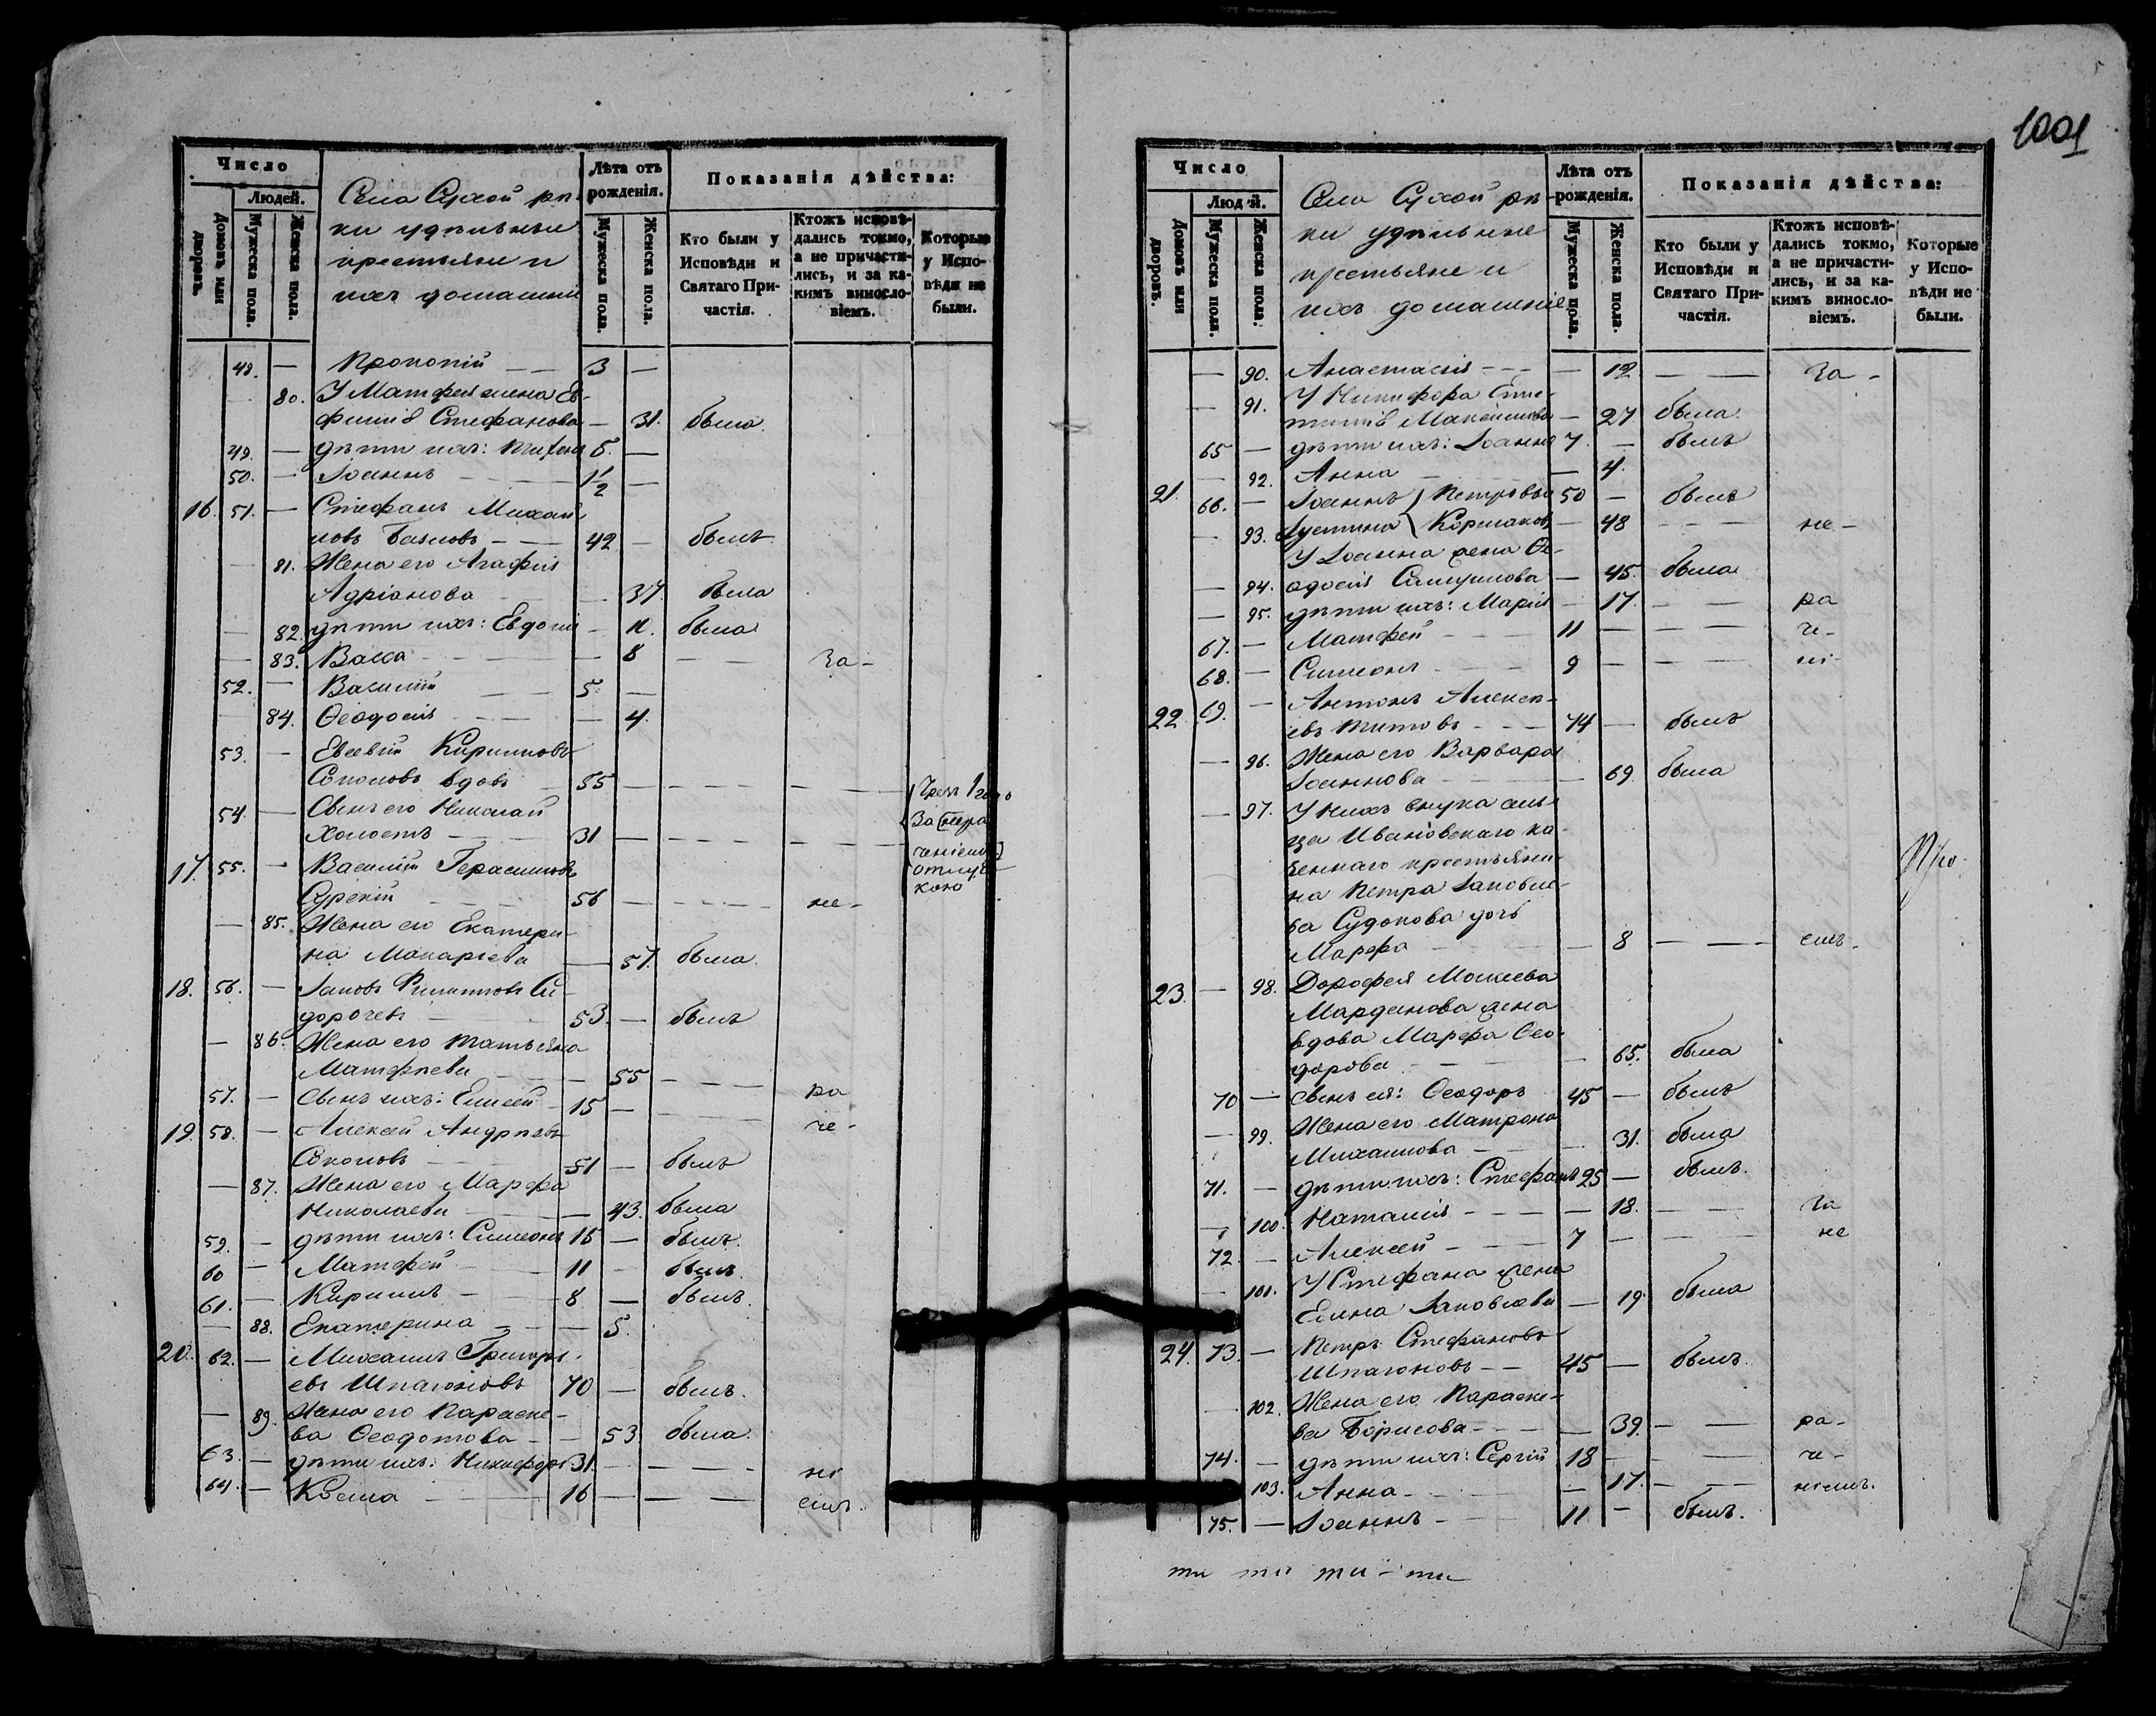 Число
Людей.
Домовъ или дворовъ.
Мужеска пола.
Женска пола.
Села Сухой рѣ-
ки удѣльные
крестьяне и
ихъ домашніе
Лѣта отъ рожденія.
Мужеска пола.
Женска пола.
Показанія дѣйства:
Кто были у Исповѣди и Святаго Причастія.
Ктожъ исповѣдались токмо, а не причастились, и за какимъ винословіемъ.
Которые у Исповѣди не были.
48. — Прокопій — — 3 —
80. У Матфея жена Ев-
фимія Стефанова — 31. была.
49. — дѣти ихъ: Тихонъ 5. —
50. — Іоаннъ — — 1½ —
16. 51. — Стефанъ Михай
ловъ — — 42 — былъ
— 81. Жена его Агафія
Адріанова — 37. была
— 82. дѣти ихъ: Евдокія — была
— 83. Васса — — 8 — — За-
52. — Василій — — 5. —
— 84. Ѳеодосія — — 4.
53. — Евсевій Кириловъ
Соколовъ вдовъ 55 — — — —
54. — Сынъ его Николай
Холостъ — 31 — — — —
17. 55. — Василій Герасимовъ
Сурскій — 56 — — — не-
— 85. Жена его Екатери-
на Макаріева — 57. была.
18. 56. — Іаковъ Филиповъ Си-
дорочевъ — 53. — былъ
— 86. Жена его Татьяна
Матфѣева — — 55 — — — ра
57. — Сынъ ихъ: Елисей — 15 — че-
19. 58. — Алексѣй Андрѣевъ
Соколовъ — 51 — былъ
— 87. Жена его Марфа
Николаева — 43. была
59. — дѣти ихъ: Симеонъ 15 — былъ.
60 — Матфей — 11 — былъ.
61. — Кирилъ — 8 — былъ.
— 88. Екатерина — — 5.
20. 62. — Михаилъ Григорь-
евъ Шпагоновъ 70 — былъ.
— 89. Жена его Параске-
ва Ѳеодотова — 53 была.
63. — дѣти ихъ: Никифоръ 31. — — — ні
64. — Косма — — 16 — — — емъ.
За нера
ченіемъ
отлуч-
кою
1001
Число
Людей.
Домовъ или дворовъ.
Мужеска пола.
Женска пола.
Села Сухой рѣ-
ки удѣльные
крестьяне и
ихъ домашніе
Лѣта отъ рожденія.
Мужеска пола.
Женска пола.
Показанія дѣйства:
Кто были у Исповѣди и Святаго Причастія.
Ктожъ исповѣдались токмо, а не причастились, и за какимъ винословіемъ.
Которые у Исповѣди не были.
— 90. Анастасія — — — 12 — — За-
— 91. У Никифора
Максимова — 27 была.
65 — дѣти ихъ: Іоаннъ 7. — былъ
— 92. Анна — 4.
21. 66. — Іоаннъ } Петровы 50 — былъ
— 93. Іустина } — 48 — — — не-
У Іоанна жена Ѳе-
— 94. одосія Самуилова — 45. была
— 95. дѣти ихъ: Марія — 17. — — ра
67. — Матфей — — 11 — — — че-
68. — Симеонъ — — 9 — — — ні-
22 69. — Антонъ Алексѣ-
евъ Титовъ — — 74 — былъ
— 96. Жена его Варвара
Іоаннова — — 69 была
— 97. У нихъ внука сель-
ца Ивановскаго ка-
зеннаго крестьяни-
на Петра Іаковле-
ва Судокова дочь
Марфа — — 8 — — — емъ-
23. — 98. Дорофея Моисеева
Марданова жена
вдова Марфа Ѳео-
дорова — — 65. была
70 — сынъ ея: Ѳеодоръ 45 — былъ
— 99. Жена его Матрона
Михаилова — — 31. была
71. — дѣти ихъ: Стефанъ 25 — былъ.
— 100. Наталія — — — 18. — — За
72. — Алексѣй — — 7 — — — не
— 101. У Стефана жена
Елена Іаковлева — 19 была
24. 73. — Петръ Стефановъ
Шпагоновъ — — 45 — былъ.
— 102. Жена его Параске-
ва Борисова — — 39. — — ра-
74. — дѣти ихъ: Сергій 18 — — че-
— 103. Анна — — — 17. — — ніемъ.
75. — Іоаннъ — — 11 — былъ.